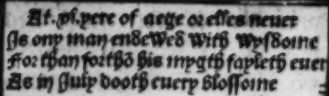 At .xl. yere of aege or elles neuer
Is ony man endewed with wysdome
For than forthō his mygth fayleth euer
As in July dooth euery blossome